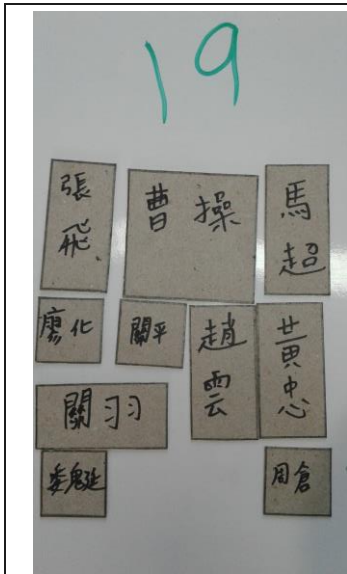 19
張飛
曹操
馬超
廖化
關平
趙雲
黃忠
關羽
魏延
周倉